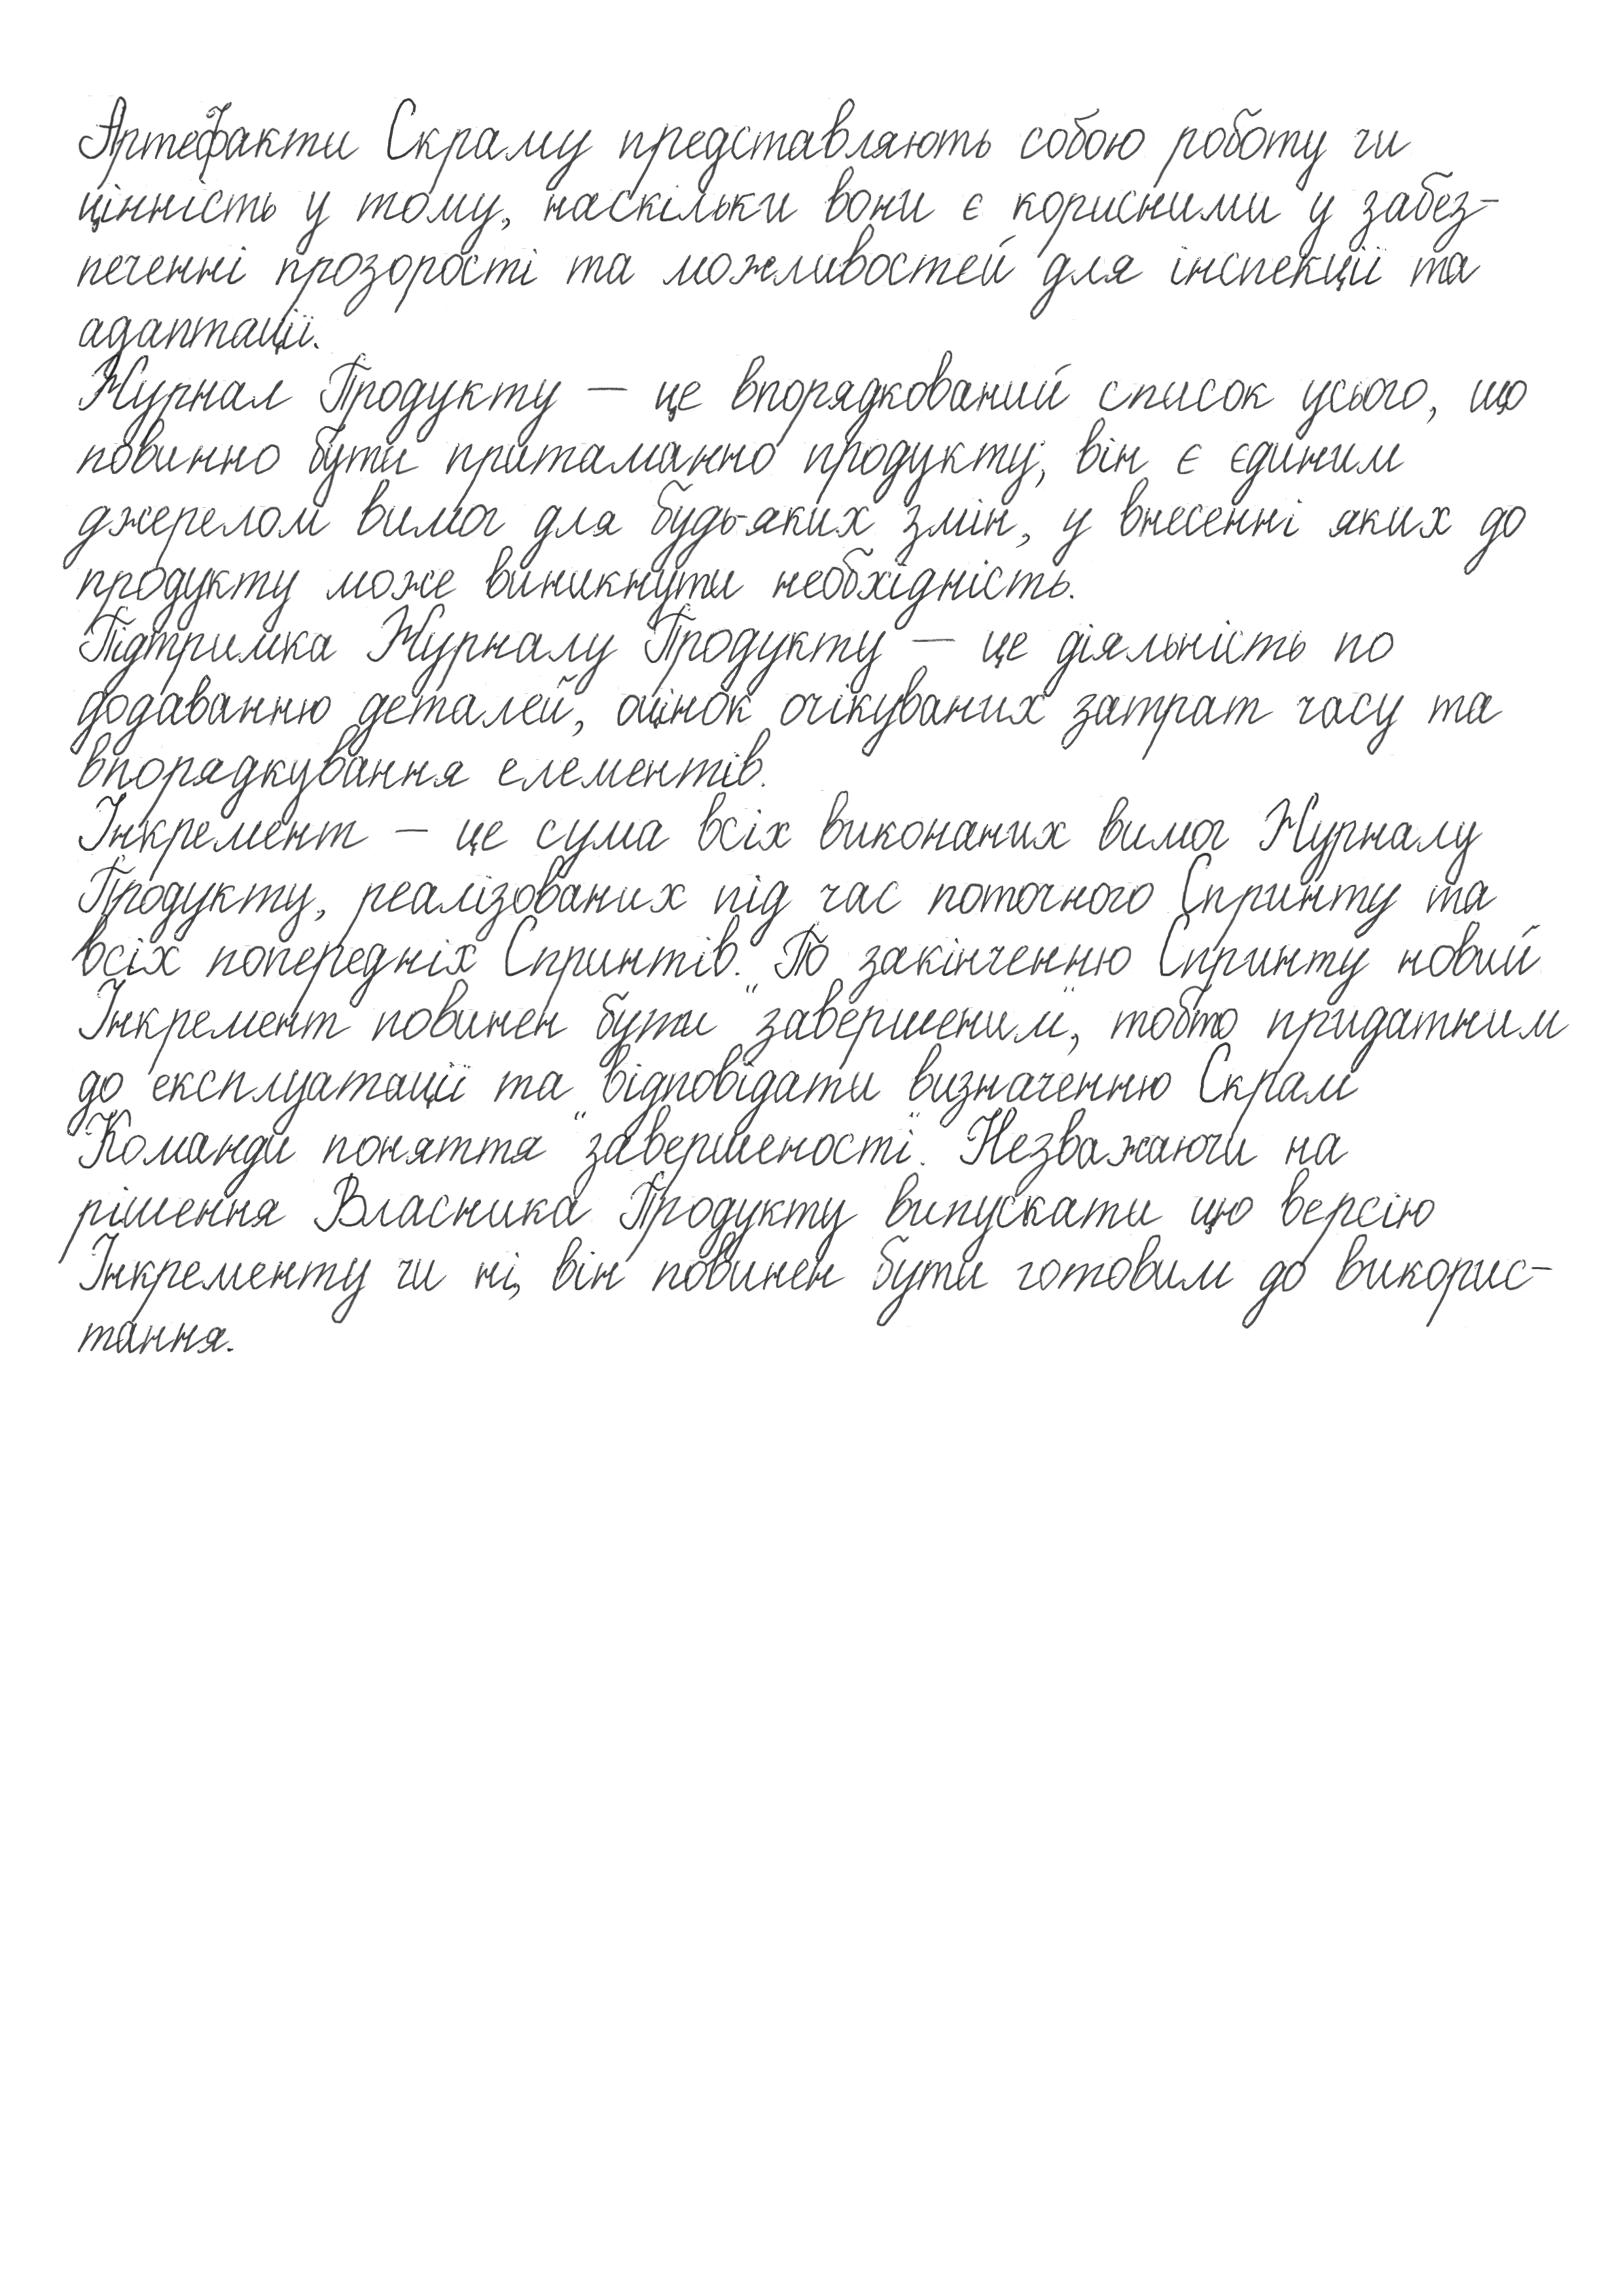 Артефакти Скраму представляють собою роботу чи
цінність у тому, наскільки вони є корисними у забез-
печенні прозорості та можливостей для інспекції та
адаптації.
Журнал Продукту — це впорядкований список усього, що
повинно бути притаманно продукту; він є єдиним
джерелом вимог для будь-яких змін, у внесенні яких до
продукту може виникнути необхідність.
Підтримка Журналу Продукту — це діяльність по
додаванню деталей, оцінок очікуваних затрат часу та
впорядкування елементів.
Інкремент — це сума всіх виконаних вимог Журналу
Продукту, реалізованих під час поточного Спринту та
всіх попередніх Спринтів. По закінченню Спринту новий
Інкремент повинен бути "завершеним", тобто придатним
до експлуатації та відповідати визначенню Скрам
Команди поняття "завершеності". Незважаючи на
рішення Власника Продукту випускати цю версію
Інкременту чи ні, він повинен бути готовим до викорис-
тання.